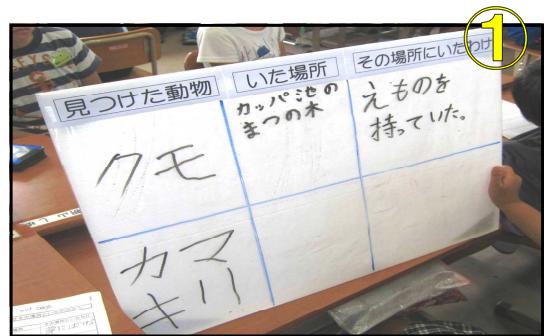 ①
見つけた動物
いた場所
その場所にいたわけ
クモ
カッパ池の
まつの木
えものを
持っていた。
カマ
キリ